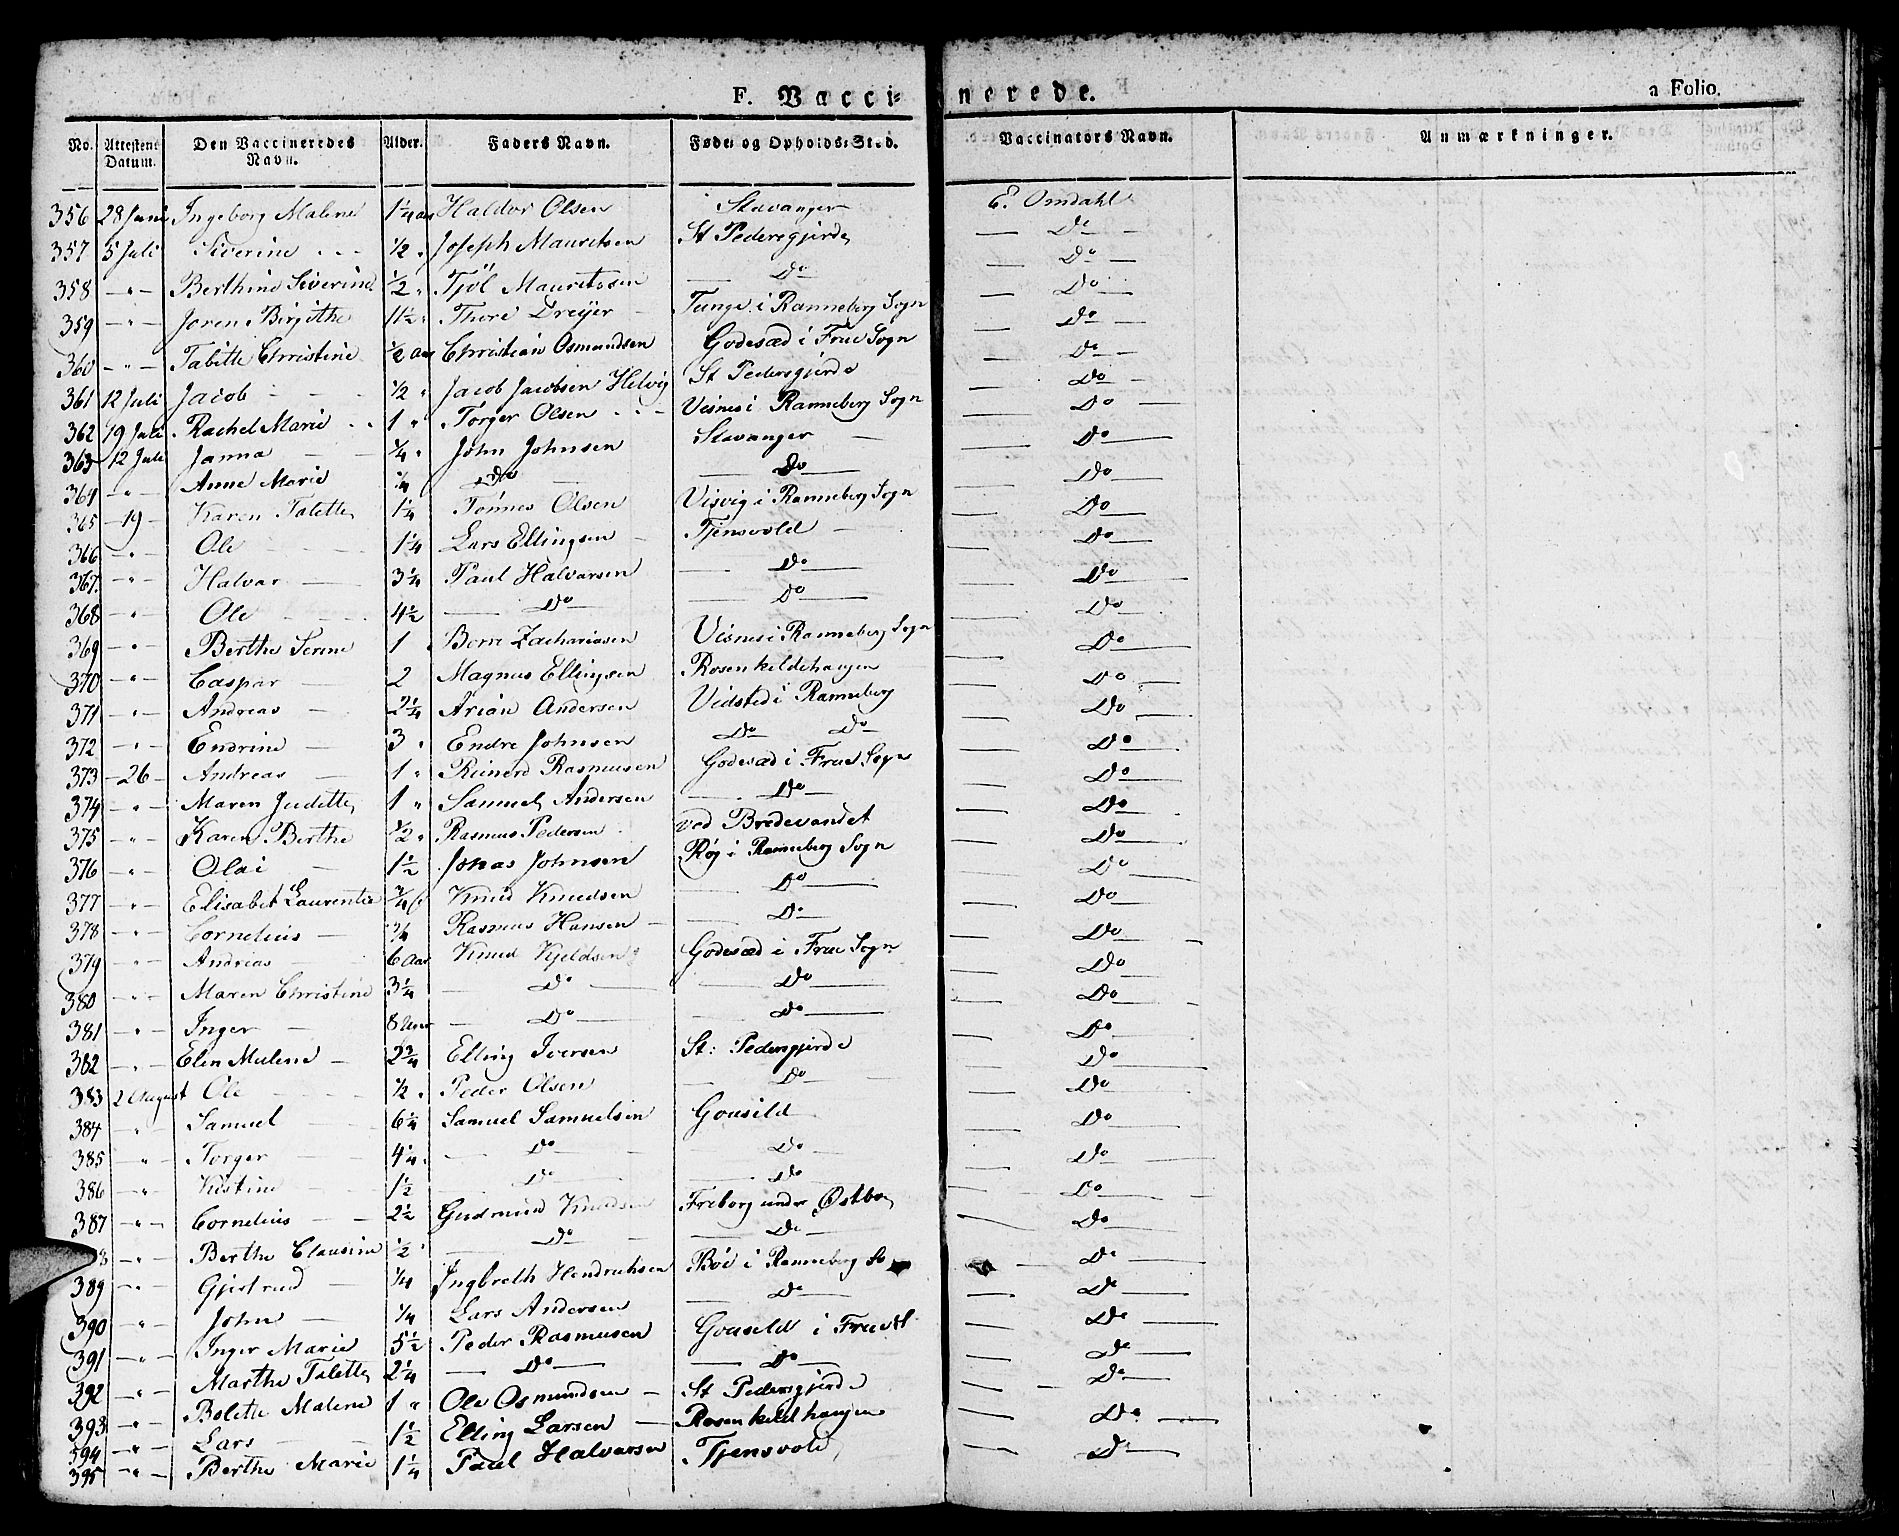 F. Vacci- nerede. a Folio.
No. Attestens Datum. Den Vaccineredes Navn. Alder. Faders Navn. Føde- og Opholds-Sted. Vaccinators Navn. Anmærkninger.
356 28 Juni Ingeborg Malene 1 1/4 aar Haldor Olsen Stavanger E. Omdahl
357 5 Juli Siverine 1/2 " Joseph Mauritsen St Pedersgjerde — Do —
358 — " — Berthine Siverine 1/2 " Tjöl Mauritssen — Do — — Do —
359 — " — Joren Birgithe 1 1/2 " Thore Dreyer — Tunge i Ranneberg Sogn — Do —
360 — " — Tabitte Christine 1/2 aar Christian Osmundsen Godesæd i Frue Sogn — Do —
361 12 Juli Jacob — 1/2 " Jacob Jacobsen Helvig St Pedersgjerde — Do —
362 19 Juli Rachel Marie 1 " Torger Olsen Visnes i Ranneberg Sogn — Do —
363 12 Juli Janna — 3/4 " John Johnsen Stavanger — — Do —
364 — " — Anne Marie 1/4 Do — Do — — Do —
365 — 19 — Karen Talette 1 1/4 Tönnes Olsen Visvig i Ranneberg Sogn — Do —
366 — " — Ole 1 1/4 Lars Ellingsen — Tjensvold — — Do —
367. — " — Halvar — 3 1/4 Paul Halvarsen — Do — — Do —
368 — " — Ole 4 1/2 — Do — Do — — Do
369 — " — Berthe Serine 1 Borre Zachariasen Visnes i Ranneberg Sogn — Do —
370 — " — Caspar — 2 Magnus Ellingsen Rosenkildehaugen — Do
371 — " — Andreas — 2 1/4 Arian Andersen Vidsted i Ranneberg — Do —
372 — " — Endrine — 3 " Endre Johnsen Do — Do — — Do
373 — 26 — Andreas — 1 " Reinerd Rasmusen Godesæd i Frue Sogn — Do
374 — " — Maren Judette 1 " Samuel Andersen — Do — — Do
375 — " — Karen Berthe 1/2 " Rasmus Pedersen ved Bredevandet — Do —
376 — " — Olai — 1 1/2 Jonas Johnsen Røg i Ranneberg Sogn — Do —
377 — " — Elisabet Laurentia 3/4 Knud Knudsen — Do — — Do —
378 — " — Cornelius — 3/4 Rasmus Hansen — — Do — — Do —
379 — " — Andreas — 6 Aar Knud Kjeldsen Godesæd i Frue Sogn — Do
380 — " — Maren Christine 3 1/4 — Do — — Do — — Do —
381 — " — Inger — 8 — Do — — Do — — Do
382 — " — Elen Malene — 2 3/4 Elling Iversen St: Pedersgjerde — Do —
383 2 August Ole 1/2 " Peder Olsen — Do — — Do
384 — " — Samuel — 6 1/4 Samuel Samuelsen Gousild — Do —
385 — " — Torger — 4 1/4 — Do — — Do — — Do —
386 — " — Kistine — 1 1/2 — Do — — Do — — Do —
387 — " — Cornelius — 2 1/2 Gudmund Knudsen Friborg under Østbo — Do
8 — " — Berthe Clausine 1/2 — Do — — Do — — Do —
389 — " — Gjertrud — 1/4 Ingbreth Hendrichsen Böe i Ranneberg So — Do —
390 — " — John — 1/4 Lars Andersen — Do — — Do —
391 — " — Inger Marie 5 1/2 Peder Rasmusen Gousild i Frue — Do —
392 — " — Marthe Talette 2 1/4 — Do — — Do — — Do —
393 — " — Bolette Malene 1 " Ole Osmundsen — St Pedersgjerde — Do —
394 — " — Lars — 1 1/2 Elling Larsen — Rosenkildehaugen — Do —
395 — " — Berthe Marie 1 1/4 Paul Halvarsen Tjensvold — Do —